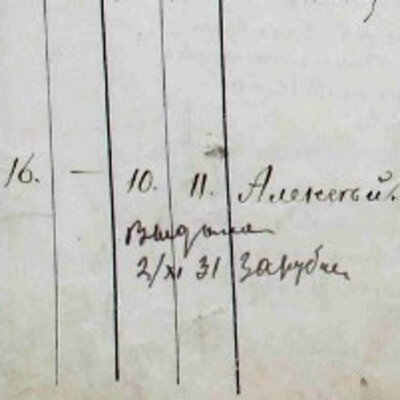 16. — 10. 11. Алексѣй.
Выдана
2/XI 31 Зарубки